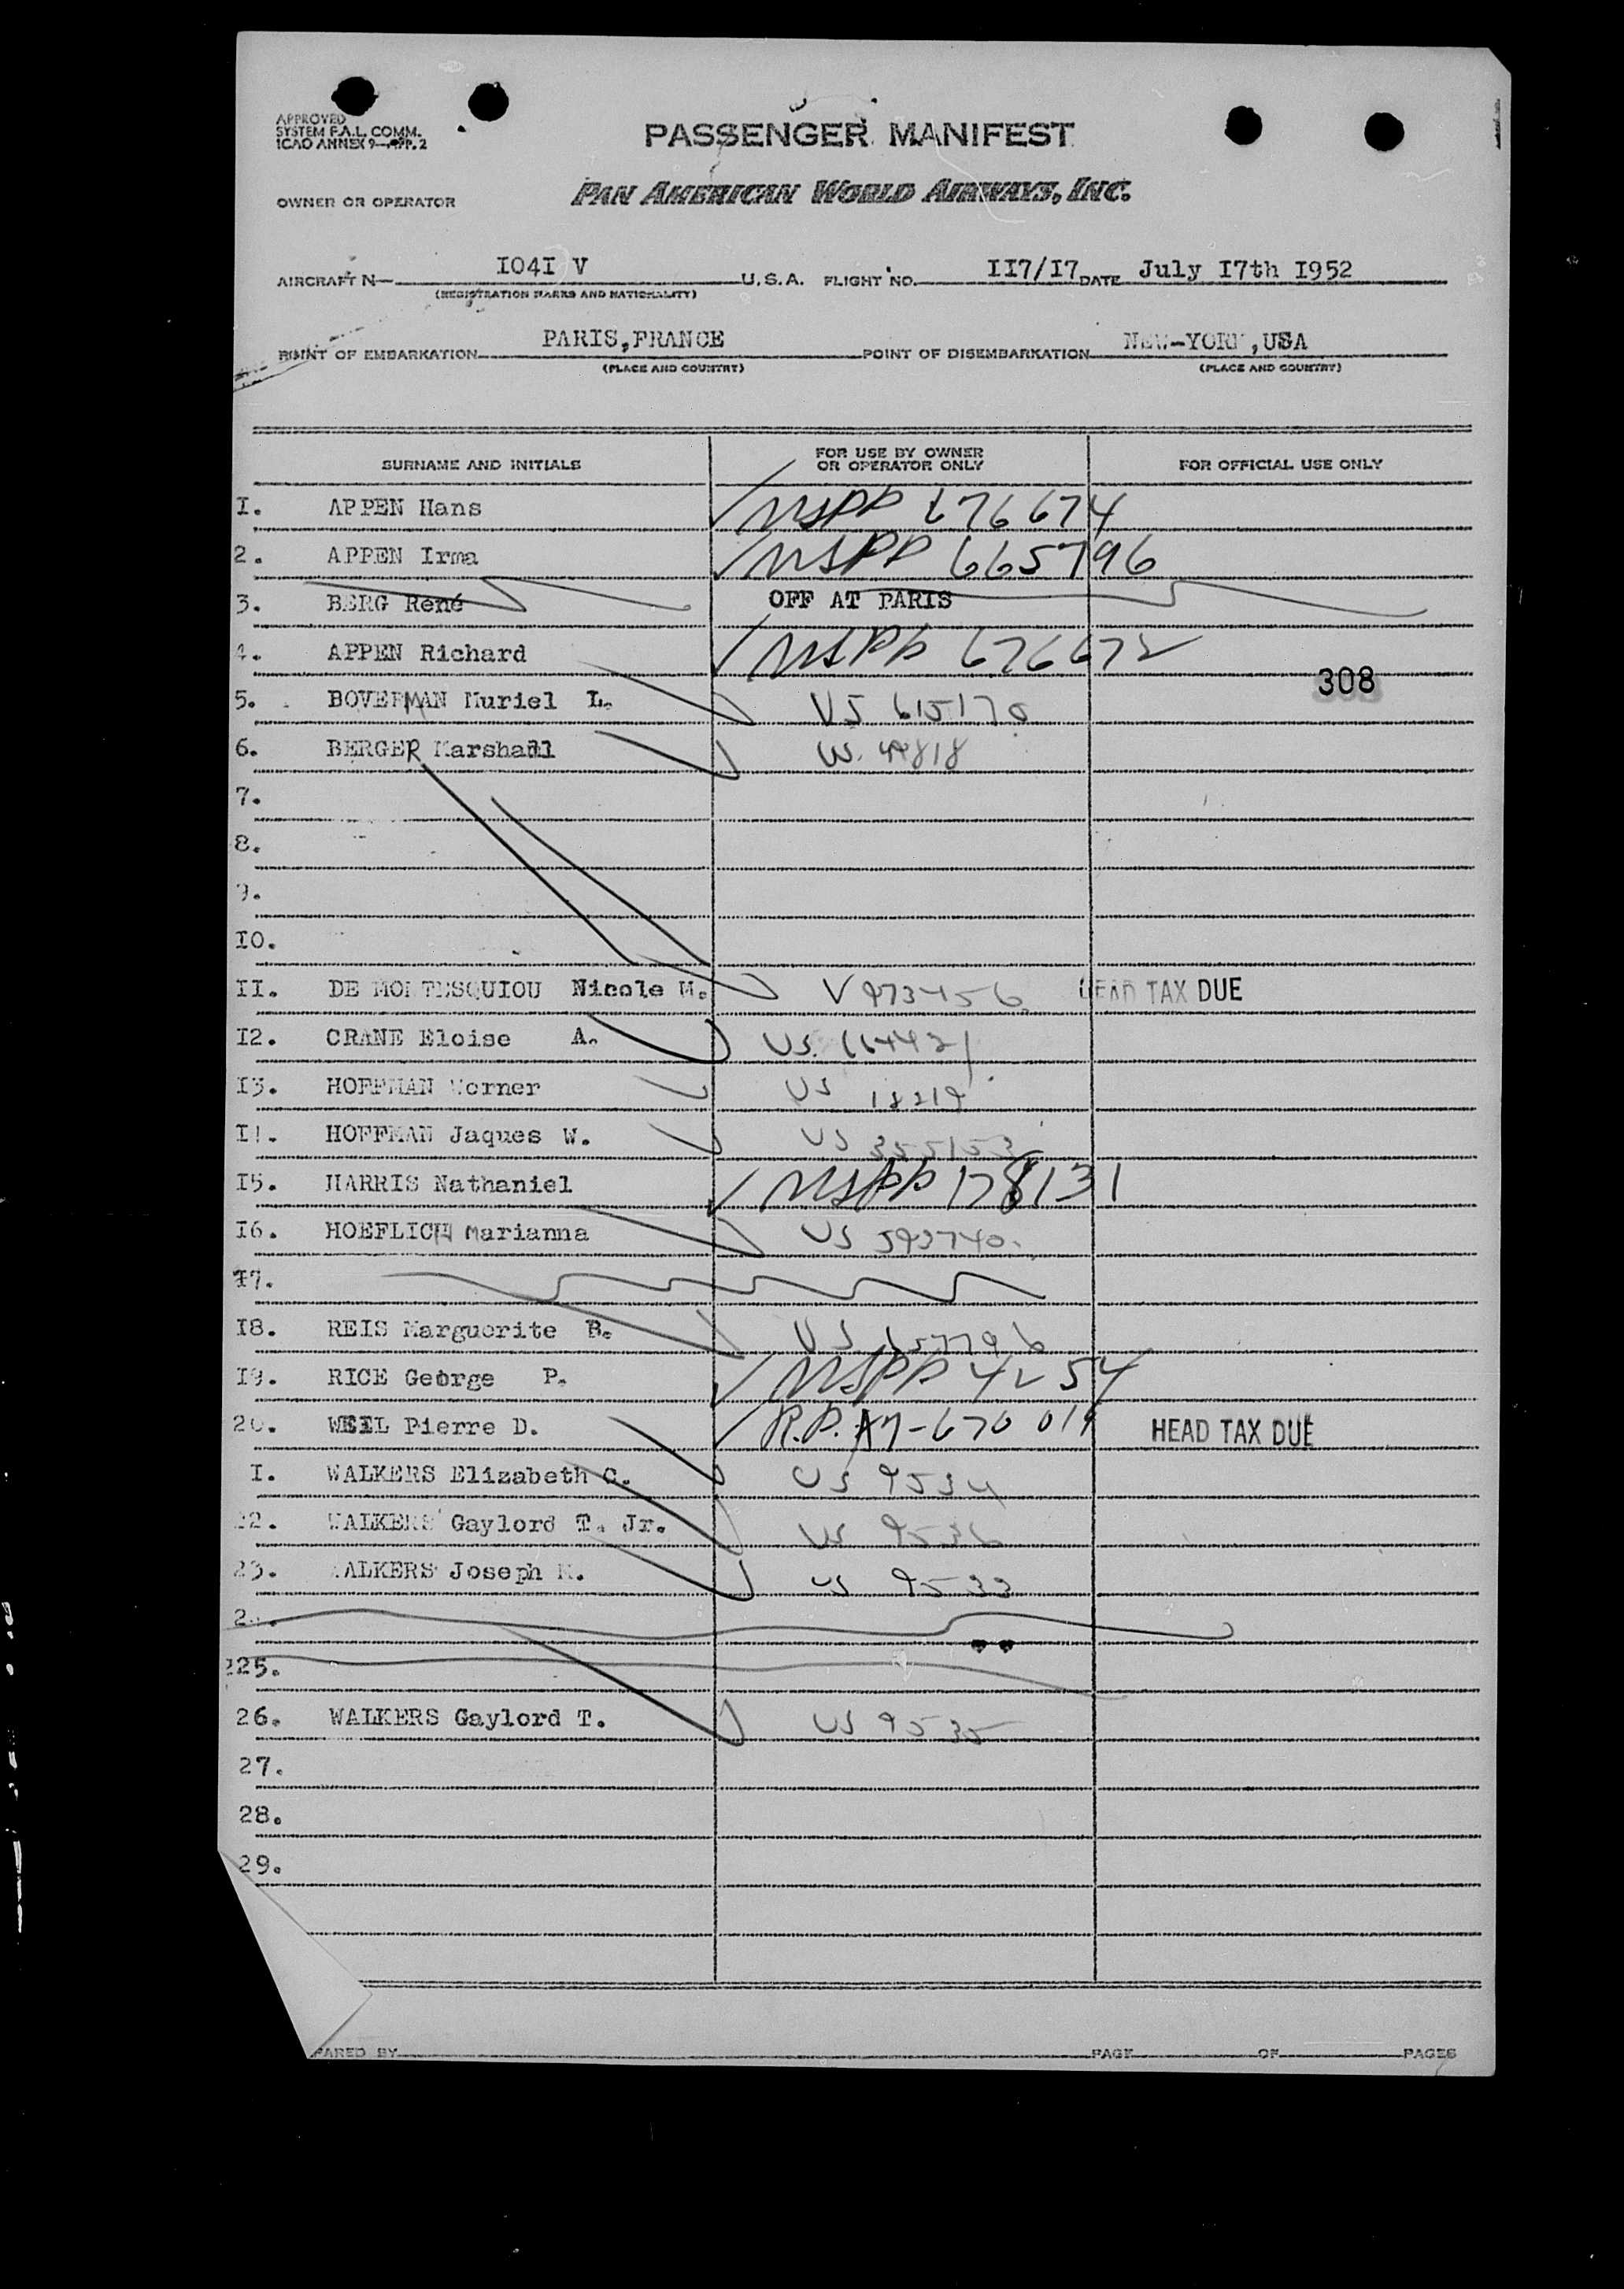 APPROVED
SYSTEM F.A.L. COMM.
ICAO ANNEX 9—APP. 2
PASSENGER MANIFEST
OWNER OR OPERATOR PAN AMERICAN WORLD AIRWAYS, INC.
AIRCRAFT N— I04I V U.S.A. FLIGHT NO. II7/I7 DATE July I7th I952
(REGISTRATION MARKS AND NATIONALITY)
POINT OF EMBARKATION PARIS,FRANCE POINT OF DISEMBARKATION NEW-YORK,USA
(PLACE AND COUNTRY) (PLACE AND COUNTRY)
SURNAME AND INITIALS FOR USE BY OWNER OR OPERATOR ONLY FOR OFFICIAL USE ONLY
I. APPEN Hans USPP 676674
2. APPEN Irma USPP 665796
3. BERG René OFF AT PARIS
4. APPEN Richard USPP 676672
308
5. BOVERMAN Muriel L. US 615170
6. BERGER Marshall US. 49818
7.
8.
9.
I0.
II. DE MONTESQUIOU Nicole M. V 973456 HEAD TAX DUE
I2. CRANE Eloise A. US.
I3. HOFFMAN Werner US 18219
I4. HOFFMAN Jaques W. US 355153
I5. HARRIS Nathaniel USPP 178131
I6. HOEFLICH Marianna US 593740
I7.
I8. REIS Marguerite B. US 657796
I9. RICE George P. USPP 4254
20. WEIL Pierre D. R.P. A7-670 019 HEAD TAX DUE
I. WALKERS Elizabeth C. US 9534
22. WALKERS Gaylord T. Jr. US 9536
23. WALKERS Joseph US 9533
2
25.
26. WALKERS Gaylord T. US 9535
27.
28.
29.
PARED BY PAGE OF PAGES